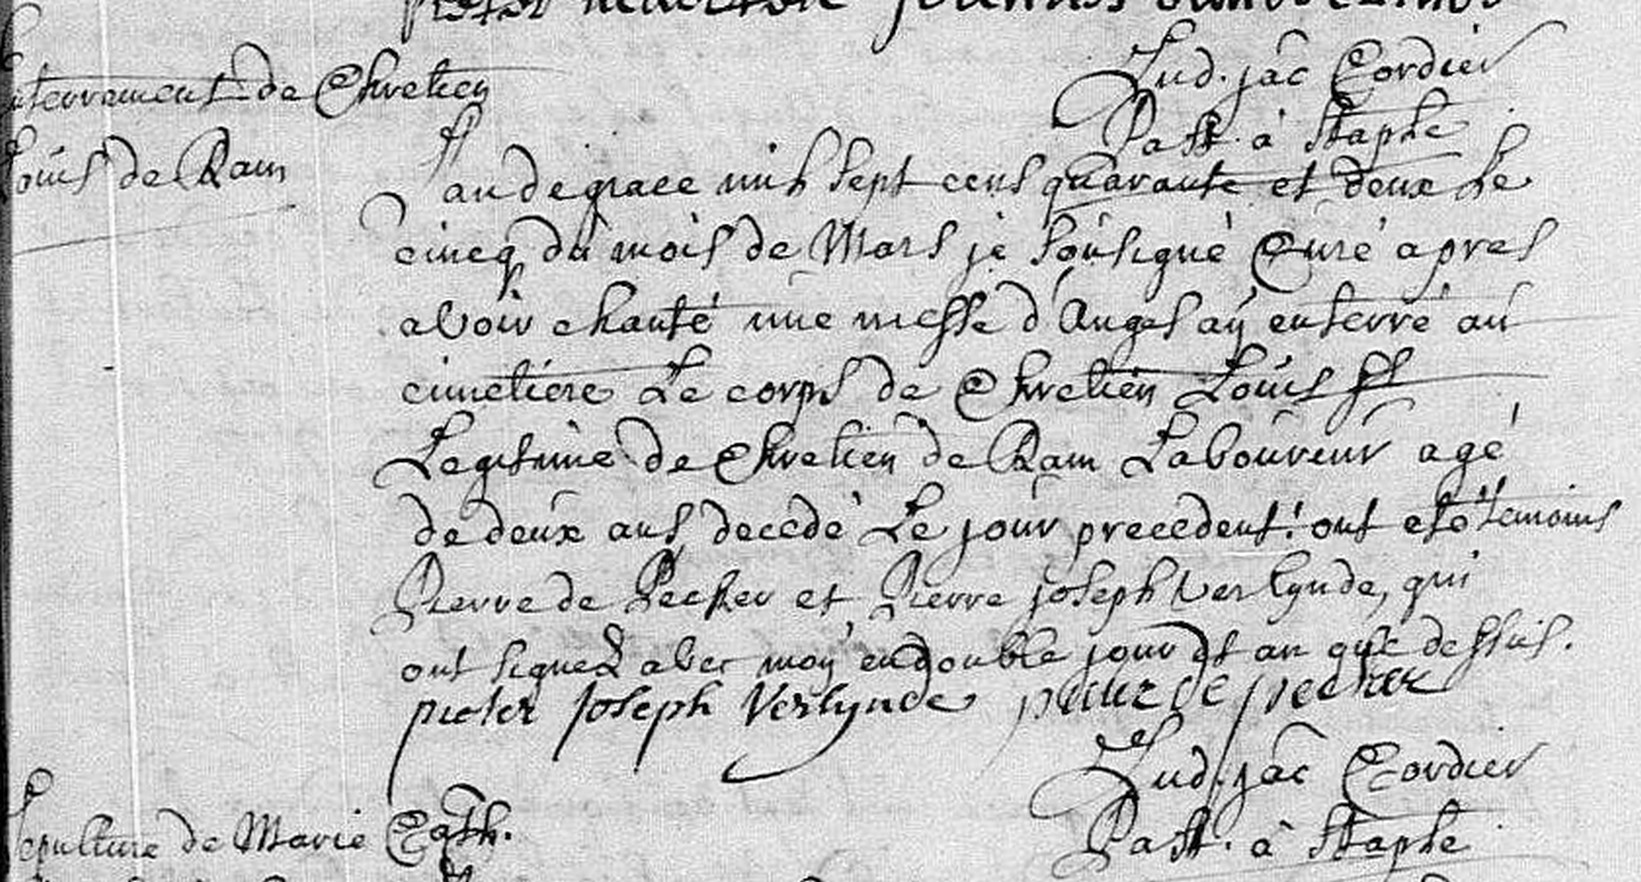 Lud. jâc Cordier
Past. à Staple
Enterrement de Chretien
Louis de Ram
L'an de grace mil sept cens quarante et deux Le
cincq du mois de Mars je soùsigné Curé apres
avoir chanté une messe d'Anges aÿ enterré aú
cimetiere Le corps de Chretien Loúis fil
Legitime de Chretien de Ram Laboureur agé
de deúx ans decedé Le joúr precedent: ont eté temoins
Pierre de Pecker et Pierre joseph Verlynde, qui
ont signez avec moy en double jour et an que dessus.
pieter Joseph Verlynde pieter de pecker
Lud. jâc Cordier
Past. à Staple
Sepulture de Marie Cath.